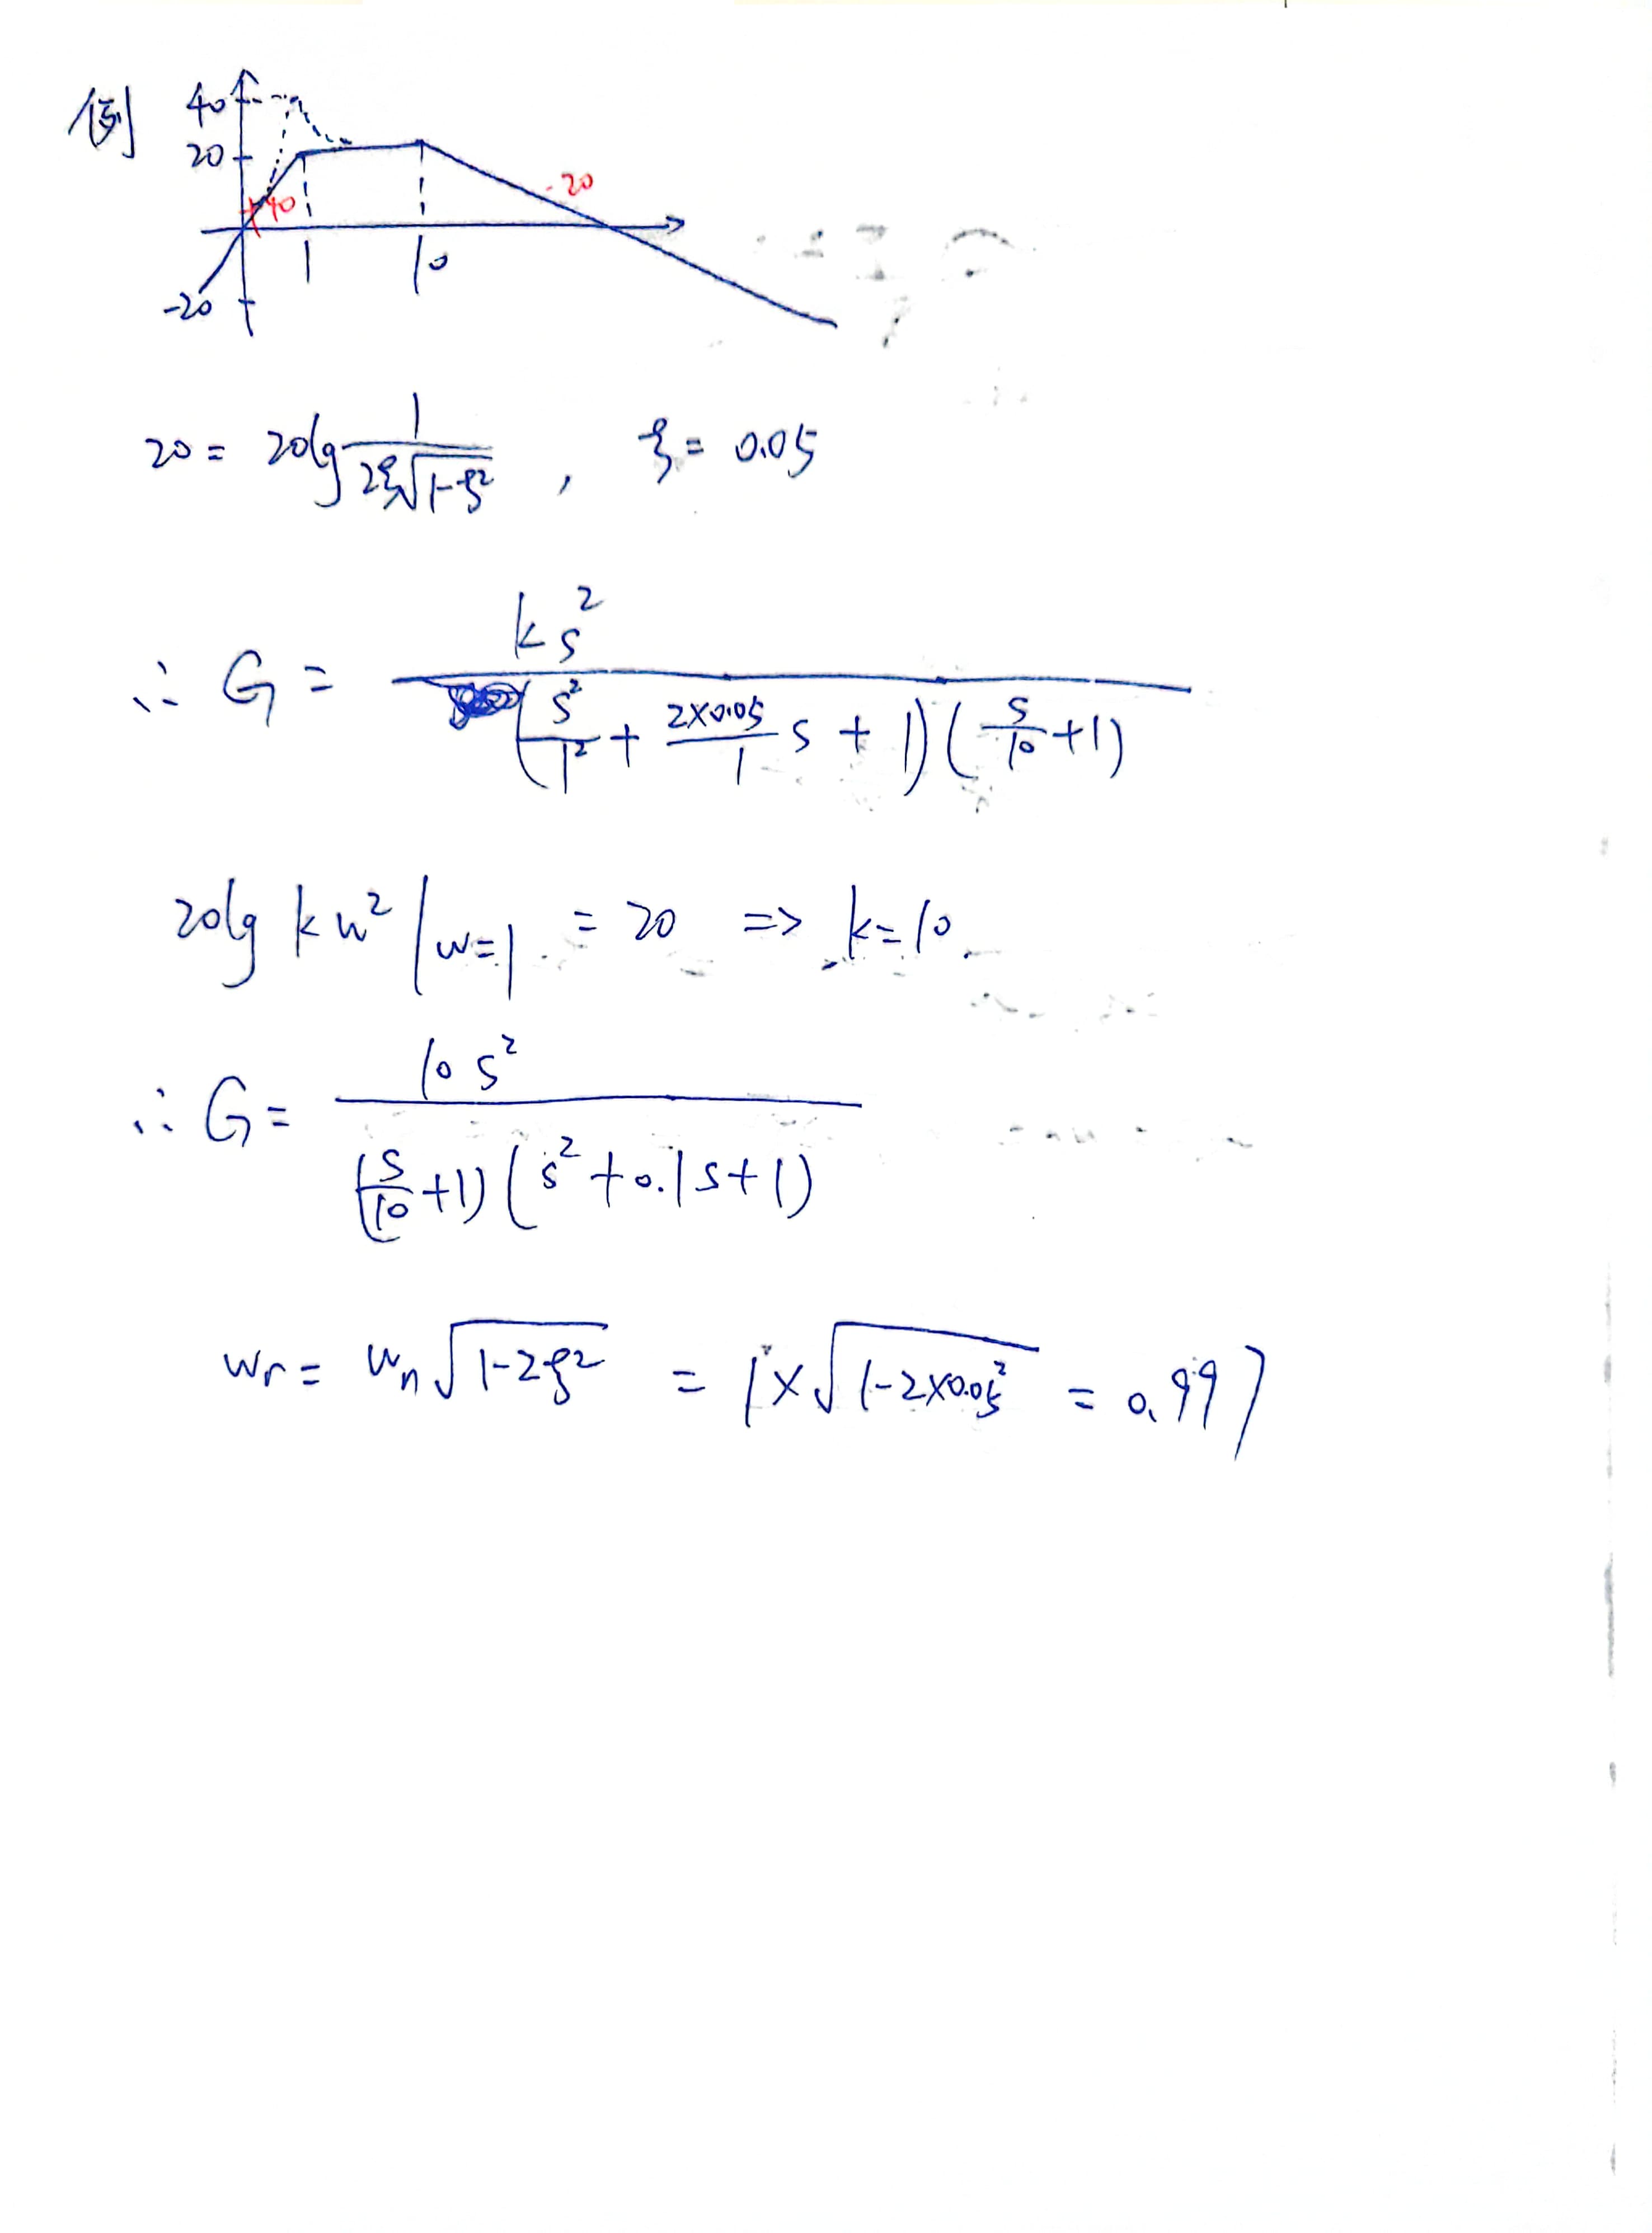 例 40
20
+40 -20
1 10
-20
20 = 20lg 1/(2ξ√(1-ξ²)) , ξ = 0.05
∴ G = ks² / (s²/1² + (2×0.05/1)s + 1)(s/10 + 1)
20lg kw² |w=1 = 20 => k=10.
∴ G = 10s² / (s/10 + 1)(s² + 0.1s + 1)
wr = wn√(1-2ξ²) = 1×√(1-2×0.05²) = 0.997